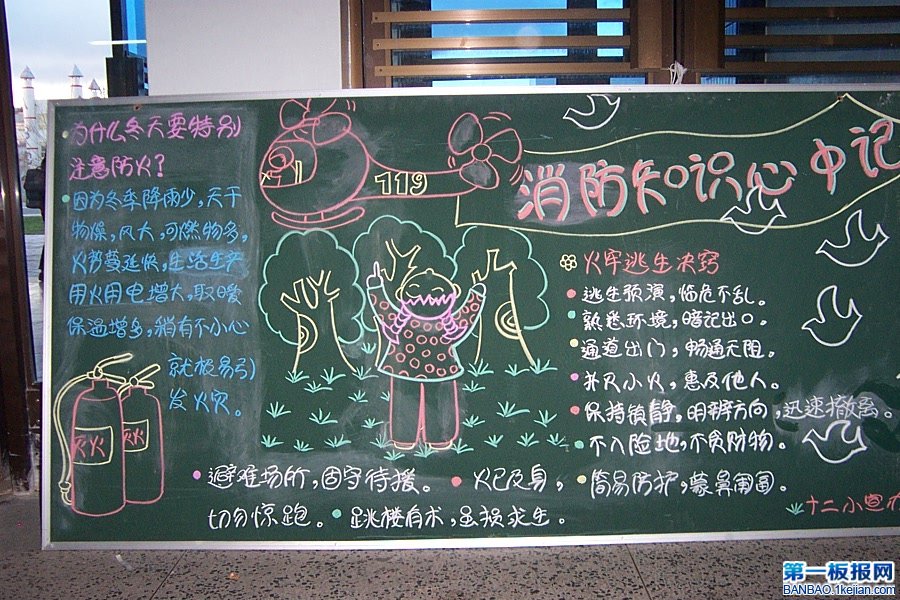 为什么冬天要特别
注意防火?
因为冬季降雨少,天干
物燥,风大,可燃物多,
火势蔓延快,生活生产
用火用电增大,取暖
保温增多,稍有不小心
就极易引
发火灾。
灭火
灭火
119
消防知识心中记
火牢逃生决窍
逃生预演,临危不乱。
熟悉环境,暗记出口。
通道出门,畅通无阻。
扑灭小火,惠及他人。
保持镇静,明辨方向,迅速撤离。
不入险地,不贪财物。
简易防护,蒙鼻匍匐。
避难场所,固守待援。
火已及身,
切勿惊跑。
跳楼有术,虽损求生。
十二小宣
第一板报网
BANBAO.1kejian.com